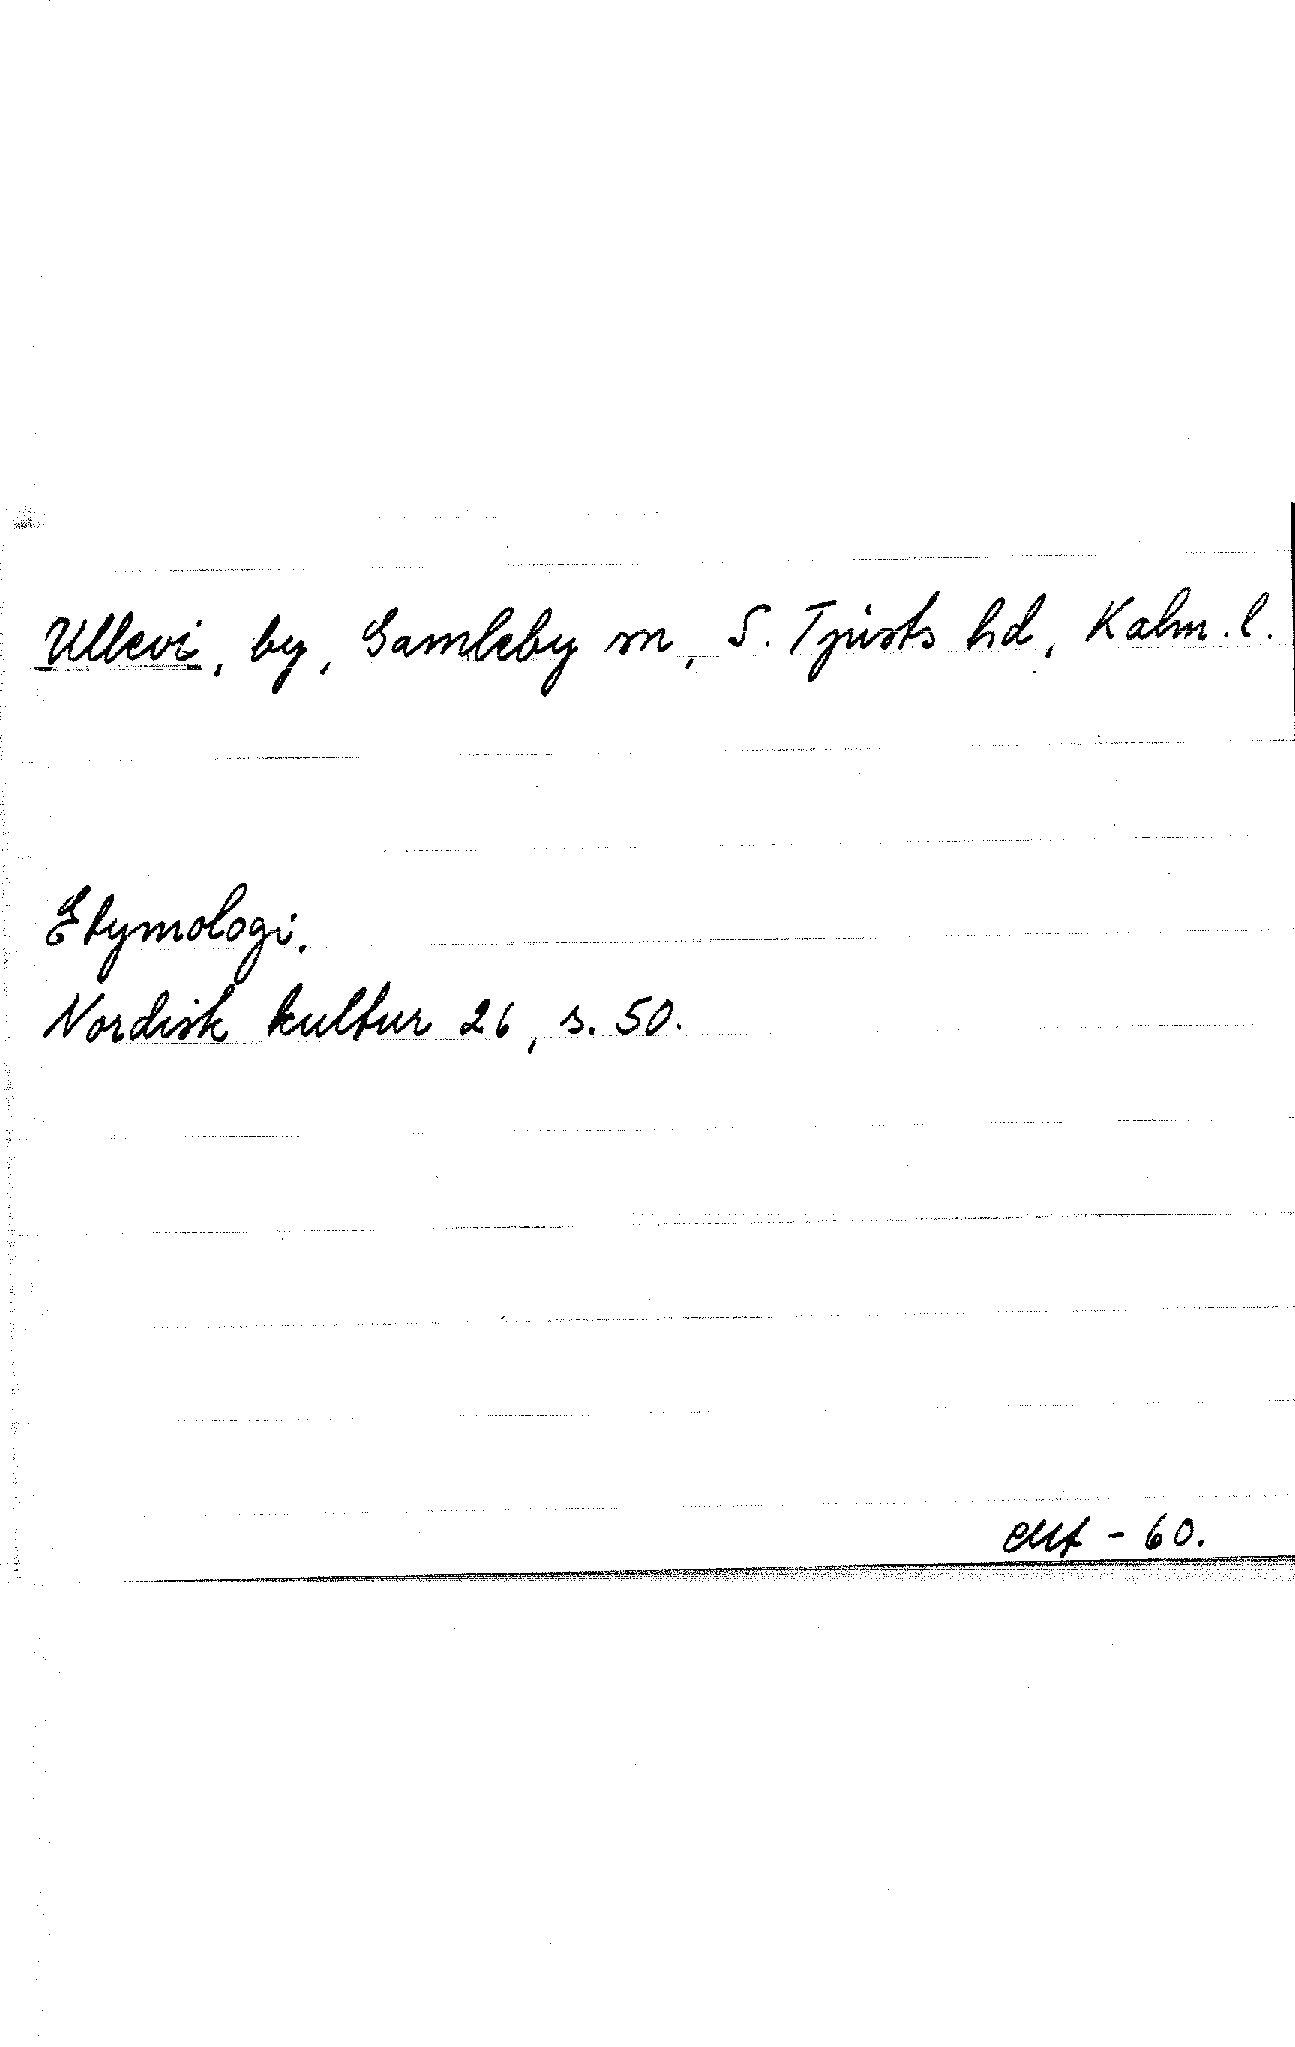 Ullevi, by, Gamleby sn, S. Tjusts hd, Kalm. l.
Etymologi.
Nordisk kultur 26, s. 50.
- 60.